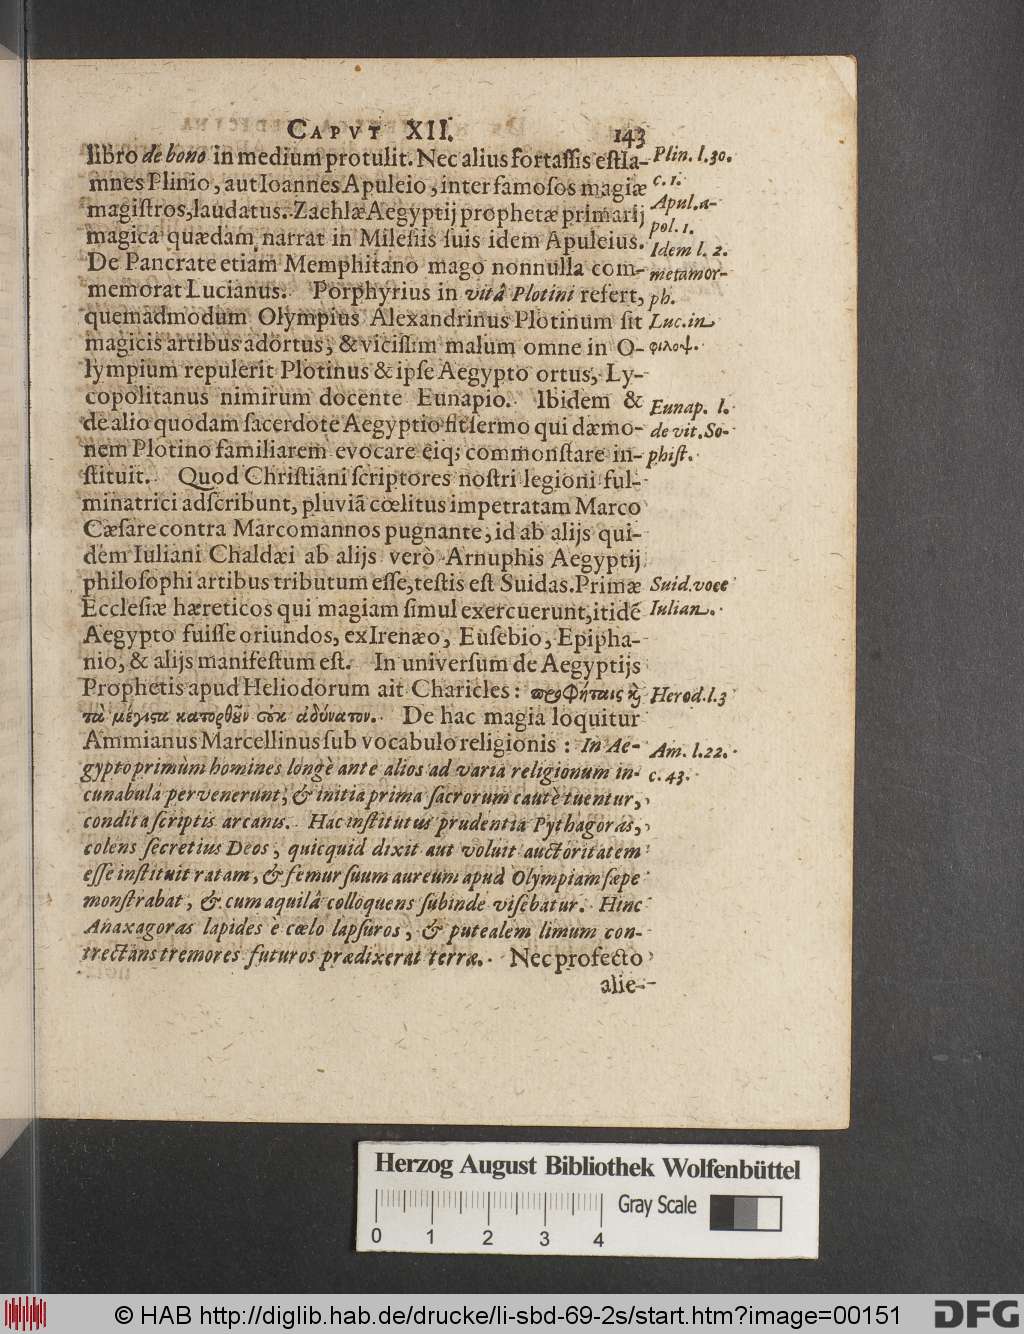 CAPVT XII. 143
libro de bono in medium protulit. Nec alius fortassis est Ia-
mnes Plinio, aut Ioannes Apuleio, inter famosos magiæ
magistros, laudatus. Zachlæ Aegyptij prophetæ primarij
magica quædam narrat in Milesiis suis idem Apuleius.
De Pancrate etiam Memphitano mago nonnulla com-
memorat Lucianus. Porphyrius in vitâ Plotini refert,
quemadmodum Olympius Alexandrinus Plotinum sit
magicis artibus adortus, & vicissim malum omne in O-
lympium repulerit Plotinus & ipse Aegypto ortus, Ly-
copolitanus nimirum docente Eunapio. Ibidem &
de alio quodam sacerdote Aegyptio fit sermo qui dæmo-
nem Plotino familiarem evocare eiq; commonstare in-
stituit. Quod Christiani scriptores nostri legioni ful-
minatrici adscribunt, pluviã cœlitus impetratam Marco
Cæsare contra Marcomannos pugnante, id ab alijs qui-
dem Iuliani Chaldæi ab alijs verò Arnuphis Aegyptij
philosophi artibus tributum esse, testis est Suidas. Primæ
Ecclesiæ hæreticos qui magiam simul exercuerunt, itidẽ
Aegypto fuisse oriundos, ex Irenæo, Eusebio, Epipha-
nio, & alijs manifestum est. In universum de Aegyptijs
Prophetis apud Heliodorum ait Charicles: προφήταις καὶ
τὰ μέγιστα κατορθοῦν οὐκ ἀδύνατον. De hac magia loquitur
Ammianus Marcellinus sub vocabulo religionis: In Ae-
gypto primùm homines longè ante alios ad varia religionum in-
cunabula pervenerunt, & initia prima sacrorum cautè tuentur,
condita scriptis arcanis. Hac institutus prudentia Pythagoras,
colens secretius Deos, quicquid dixit aut voluit auctoritatem
esse instituit ratam, & femur suum aureum apud Olympiam sæpe
monstrabat, & cum aquilâ colloquens subinde visebatur. Hinc
Anaxagoras lapides è cœlo lapsuros, & putealem limum con-
trectans tremores futuros prædixerat terræ. Nec profecto
alie-
Plin. l. 30.
c. 1.
Apul. a-
pol. 1.
Idem l. 2.
metamor-
ph.
Luc. in
φιλοψ.
Eunap. l.
de vit. So-
phist.
Suid. voce
Iulian.
Herod. l. 3
Am. l. 22.
c. 43.
Herzog August Bibliothek Wolfenbüttel
Gray Scale
0 1 2 3 4
© HAB http://diglib.hab.de/drucke/li-sbd-69-2s/start.htm?image=00151
DFG